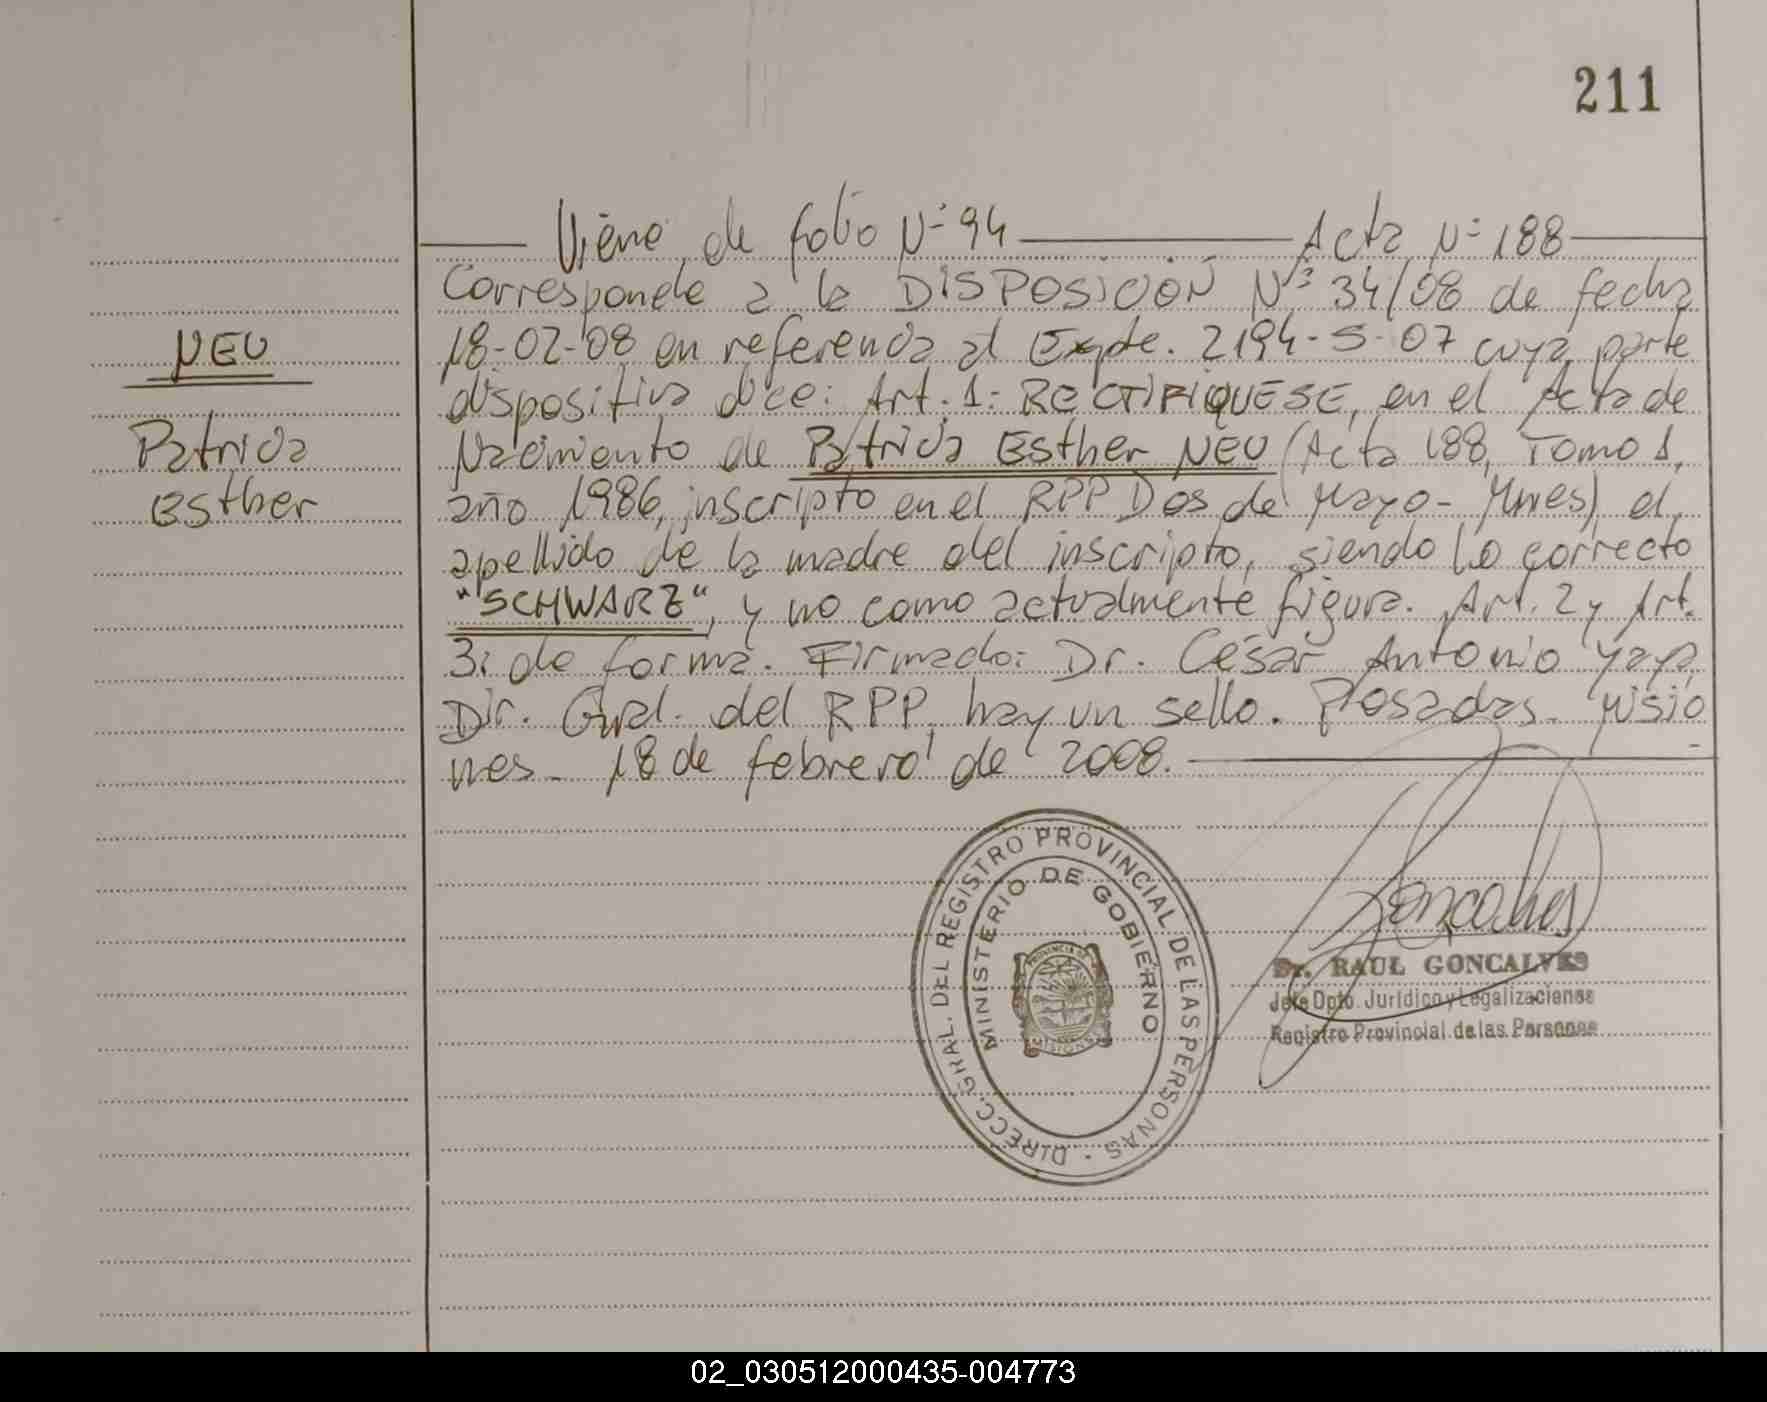 211
Viene de folio Nº 94 Acta Nº 188
Corresponde a la DISPOSICIÓN Nº 34/08 de fecha
NEU
18-02-08 en referencia al Expte. 2194-S-07 cuya parte
dispositiva dice: Art. 1: RECTIFIQUESE, en el Acta de
Patricia
Nacimiento de Patricia Esther NEU (Acta 188, Tomo 1,
Esther
año 1986, inscripto en el RPP Dos de Mayo - Mnes) el
apellido de la madre del inscripto, siendo lo correcto
"SCHWARZ", y no como actualmente figura. Art. 2 y Art.
3: de forma. Firmado: Dr. César Antonio Yaya,
Dir. Gral. del RPP, hay un sello. Posadas. Misio
nes - 18 de febrero de 2008.
DIRECC. GRAL. DEL REGISTRO PROVINCIAL DE LAS PERSONAS
MINISTERIO DE GOBIERNO
PROVINCIA DE
MISIONES
Goncalves
Dr. RAUL GONCALVES
Jefe Dpto. Jurídico y Legalizaciones
Registro Provincial de las Personas
02_030512000435-004773